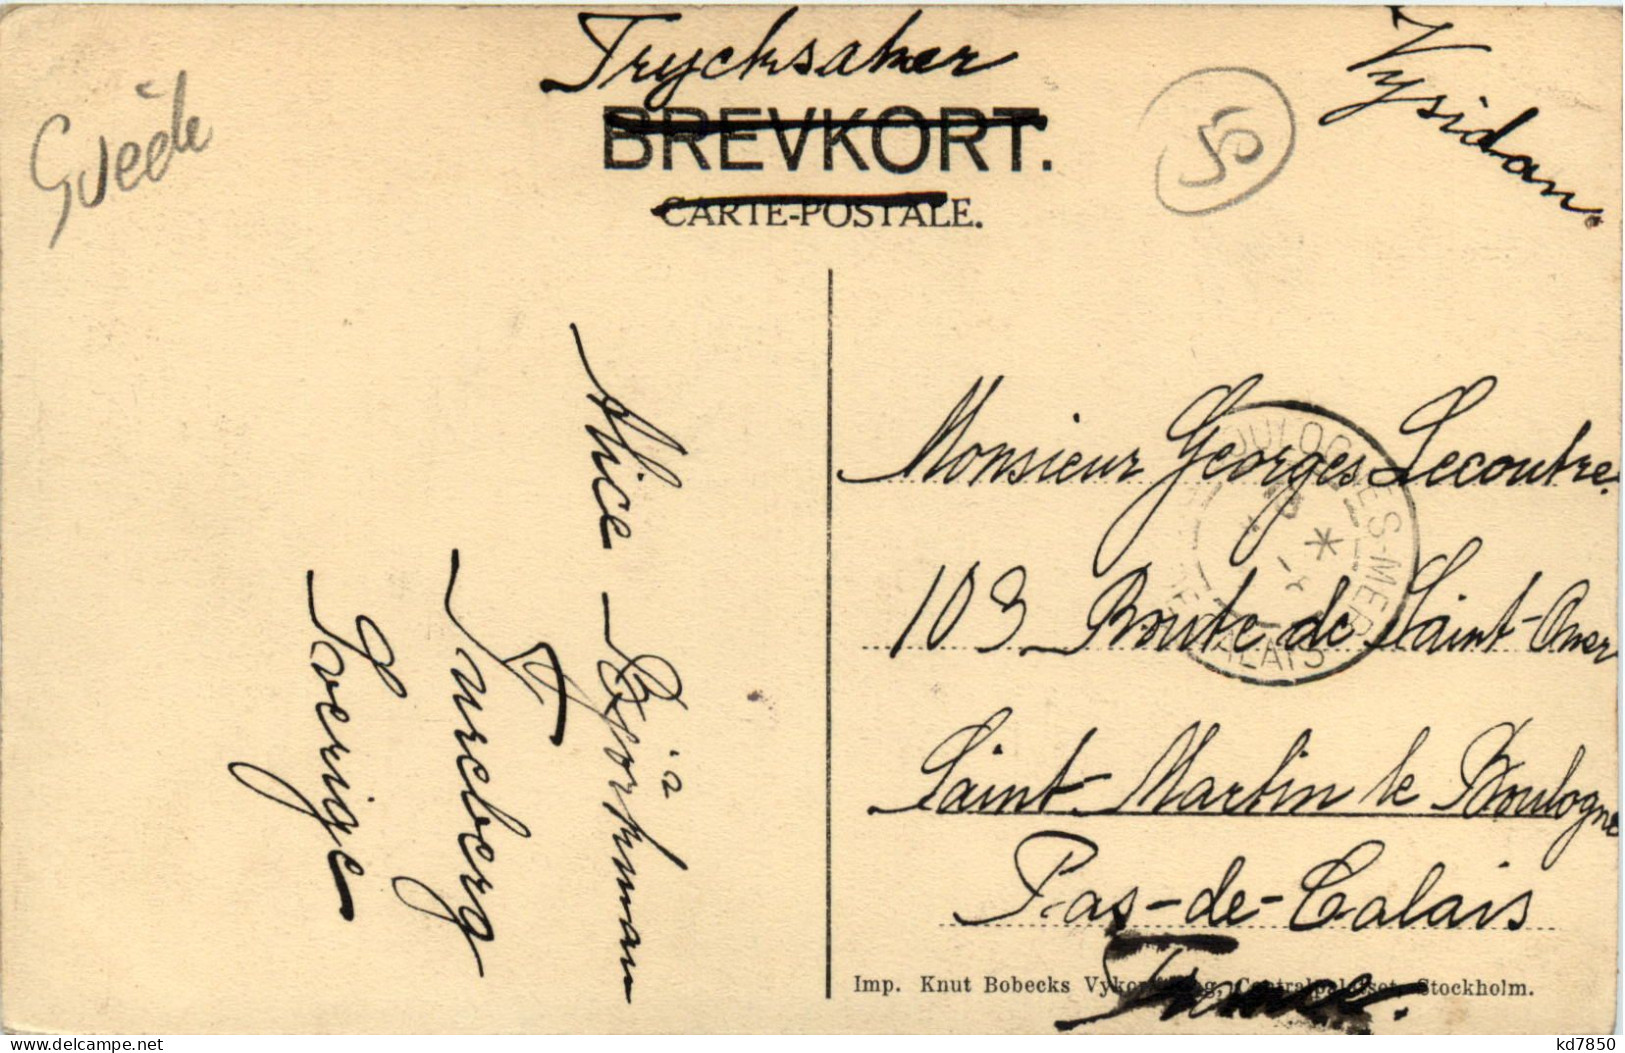 Trycksaker
BREVKORT.
CARTE-POSTALE.
Vysidan.
Suède
50
Alice Björkman
Tureberg
Sverige
Monsieur Georges Lecoutre.
103 Route de Saint-Omer
Saint-Martin le Boulogne
Pas-de-Calais
France.
BOULOGNE-S-MER
CALAIS
Imp. Knut Bobecks Vykortförlag, Centralpalatset, Stockholm.
delcampe.net
kd7850